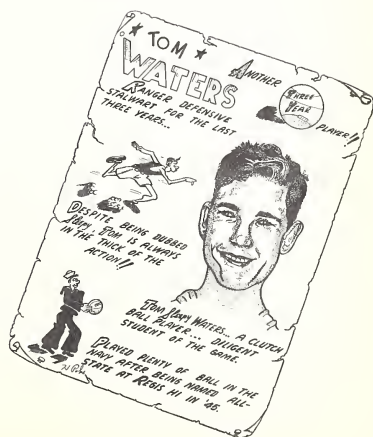 ★ TOM ★
WATERS
ANOTHER
THREE
YEAR
PLAYER!!
RANGER DEFENSIVE
STALWART FOR THE LAST
THREE YEARS...
DESPITE BEING DUBBED
Sleepy, TOM IS ALWAYS
IN THE THICK OF THE
ACTION!!
TOM Sleepy WATERS... A CLUTCH
BALL PLAYER... DILIGENT
STUDENT OF THE GAME.
PLAYED PLENTY OF BALL IN THE
NAVY AFTER BEING NAMED ALL-
STATE AT REGIS HI IN '45.